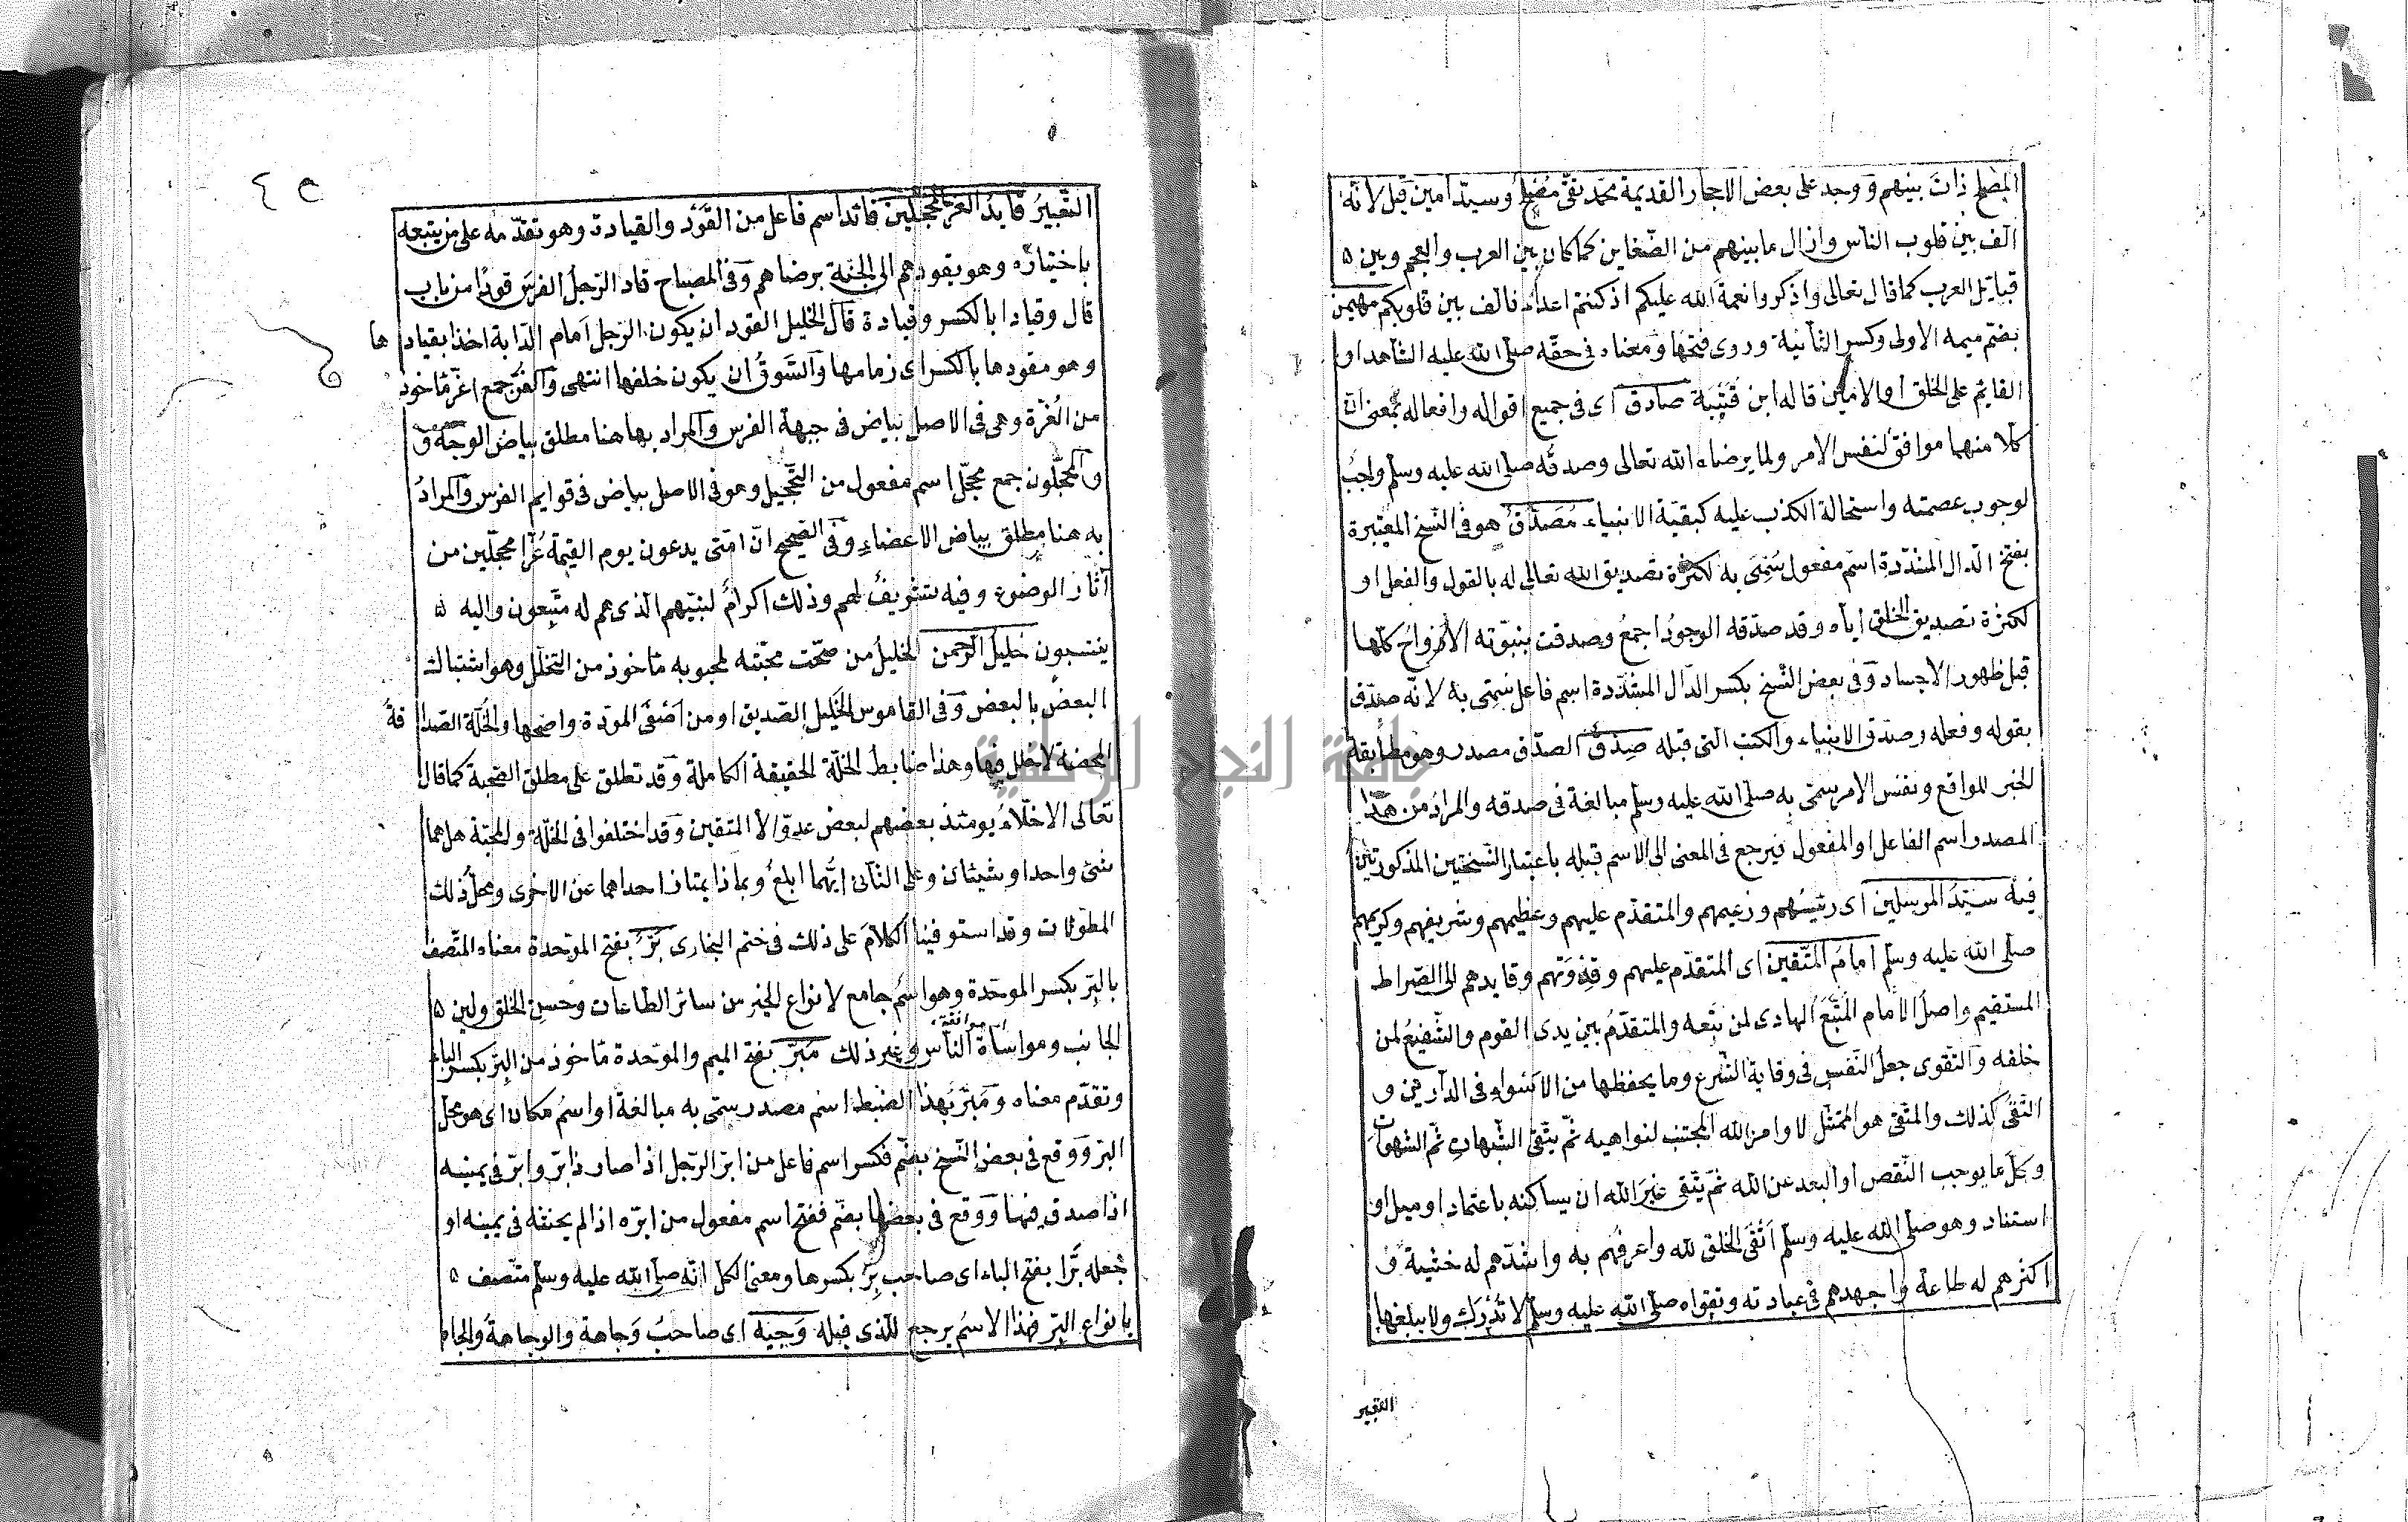 المصلح ذات بينهم ووجد على بعض الاحجار القديمة محمد تقى مصلح وسيد امين قيل لانه
الف بين قلوب الناس وازال ما بينهم من الضغاين كما كان بين العرب والعجم وبين ه
قبايل العرب كما قال تعالى واذكروا نعمة الله عليكم اذ كنتم اعداء فالف بين قلوبكم مهيمن
بضم ميمه الاولى وكسر الثانية وروى فتحها ومعناه فى حقه صلى الله عليه الشاهد او
القايم على الخلق او الامين قاله ابن قتيبة صادق اى فى جميع اقواله وافعاله بمعنى ان
كلا منهما موافق لنفس الامر ولما يرضاه الله تعالى وصدقه صلى الله عليه وسلم واجب
لوجوب عصمته واستحالة الكذب عليه كبقية الانبياء مُصَدَّق هو فى النسخ المعتبرة
بفتح الدال المشددة اسم مفعول سُمِّىَ به لكثرة تصديق الله تعالى له بالقول والفعل او
لكثرة تصديق الخلق اياه وقد صدّقه الوجودُ اجمعُ وصدقت بنبوّته الارواحُ كلّها
قبل ظهور الاجساد وفى بعض النسخ بكسر الدّال المشدّدة اسم فاعل سُمِّى به لانه صدّق
بقوله وفعله وصدّق الانبياء والكتب التى قبله صِدْق الصدق مصدر وهو مطابقة
الخبر للواقع ونفس الامر سمّى به صلى الله عليه وسلم مبالغة فى صدقه والمراد من هذا
المصدر اسم الفاعل او المفعول فيرجع فى المعنى الى الاسم قبله باعتبار النسختين المذكورتين
فيه سيّدُ المرسلين اى رئيسُهم وزعيمهم والمتقدّم عليهم وعظيمهم وشريفهم وكريمهم
صلى الله عليه وسلم امامُ المتّقين اى المتقدّم عليهم وقِدْوَتهم وقايدهم الى الصّراط
المستقيم واصل الامام المُتَّبَعُ الهادى لمن تبعه والمتقدّمُ بين يدى القوم والشّفيعُ لمن
خلفه والتقوى جعلُ النّفس فى وقاية الشّرع وما يحفظها من الاسواءِ فى الدّارين و
التّقىُّ كذلك والمتقى هو الممتثل لاوامر الله المجتنب لنواهيه ثمّ يتّقى الشّبهات ثمّ الشهوات
وكلّ ما يوجب النّقص او البعد عن الله ثمّ يتّقى غيرَ الله ان يساكنه باعتماد او ميل او
استناد وهو صلى الله عليه وسلم اَتْقَى الخلق لله واعرفُهم به واشدّهم له خشيةً و
اكثرهم له طاعة واجهدهم فى عبادته وتقواه صلى الله عليه وسلم لا تُدْرَك ولا يبلغها
التعبير
التّعبيرُ قايدُ الغر المحجّلين قائد اسم فاعل من القَوْد والقيادة وهو تقدّمه على من يتبعه
باختياره وهو يقودهم الى الجنّة برضاهم وفى المصباح قاد الرّجلُ الفرسَ قودًا من باب
قال وقيادا بالكسر وقيادة قال الخليل القود ان يكون الرّجل امام الدّابة اخذا بقيادها
وهو مقودها بالكسر اى زمامها والسَّوقُ ان يكون خلفها انتهى والغُرّ جمع اغرّ ماخوذ
من الغُرّة وهى فى الاصل بياض فى جبهة الفرس والمراد بها هنا مطلق بياض الوجه
والمحجّلون جمع محجّل اسم مفعول من التّحجيل وهو فى الاصل بياض فى قوايم الفرس والمرادُ
به هنا مطلق بياض الاعضاءِ وفى الصّحيح انّ امّتى يدعون يوم القيمة غُرًّا محجّلين من
آثار الوضوء وفيه تشريفٌ لهم وذلك اكرامٌ لنبيّهم الذى هم له متّبِعون واليه ه
ينتسبون خليلُ الرّحمن الخليل من صحّت محبّته لمحبوبه ماخوذ من التخلّل وهو اشتباك
البعض بالبعض وفى القاموس الخليل الصّديق او من اَصْفَى المودّة واصحّها والخُلّة الصّداقةُ
المحضة لا خلل فيها وهذا ضابط الخلّة الحقيقة الكاملة وقد تطلق على مطلق الصّحبة كما قال
تعالى الاخلّاءُ يومئذ بعضهم لبعض عدوّ الا المتقين وقد اختلفوا فى الخلّة والمحبّة هل هما
شئ واحد او شيئان وعلى الثّانى ايّهما ابلغُ وبماذا يمتاز احداهما عن الاخرى ومحلّ ذلك
المطوّلات وقد استوفينا الكلامَ على ذلك فى ختم البخارى بَرّ بفتح الموحّدة معناه المتّصف
بالبِرّ بكسر الموحّدة وهو اسمُ جامع لانواع الخير من سائر الطّاعات وحسنِ الخلق ولين ه
الجانب ومواساة النّاس وغير ذلك مَبَرّ بفتح الميم والموحّدة ماخوذ من البِرّ بكسر الباء
وتقدّم معناه ومَبَرّ بهذا الضبط اسم مصدر سمّى به مبالغة او اسمُ مكان اى هو محلّ
البرّ ووقع فى بعض النّسخ بضمّ فكسر اسم فاعل من ابرّ الرّجل اذا صار ذا برّ وابرّ فى يمينه
اذا صدق فيها ووقع فى بعضها بضمّ ففتح اسم مفعول من ابرّه اذا لم يحنثه فى يمينه او
جعله بَرًّا بفتح الباء اى صاحب بِرّ بكسرها ومعنى الكلّ انّه صلى الله عليه وسلم متّصف ه
بانواع البرّ فهذا الاسمُ يرجع للّذى قبله وَجِيه اى صاحبُ وَجاهة والوجاهةُ والجاه